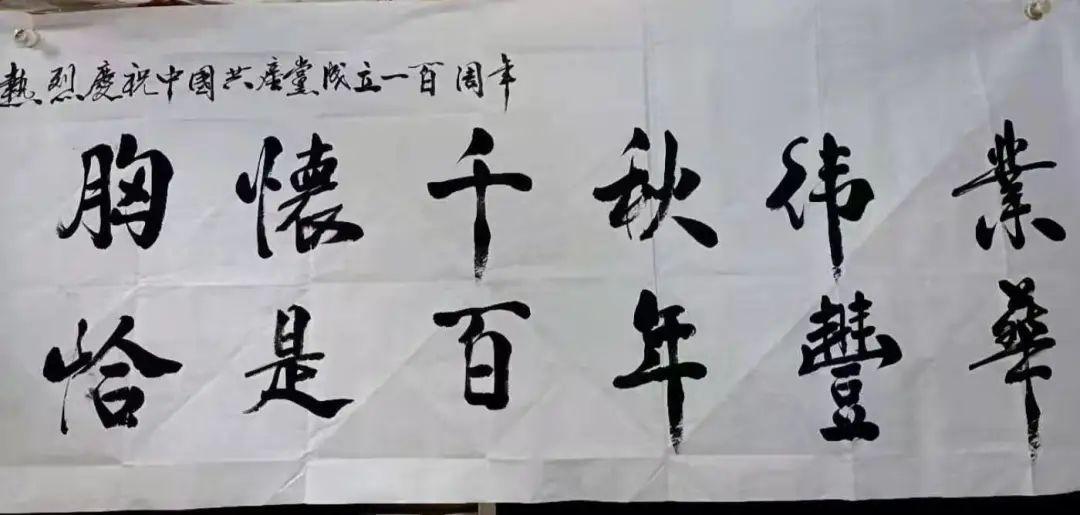 熱烈慶祝中國共產黨成立一百周年
胸懷千秋伟業
恰是百年豐華